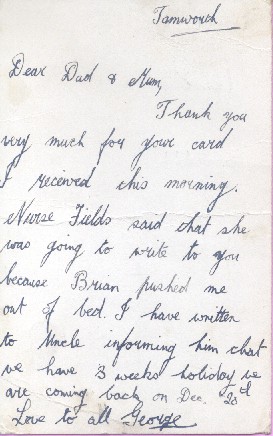 Tamworth
Dear Dad & Mum,
Thank you
very much for your card
I received this morning.
Nurse Fields said that she
was going to write to you
because Brian pushed me
out of bed. I have written
to Uncle informing him that
we have 3 weeks holiday we
are coming back on Dec. "20th
Love to all George